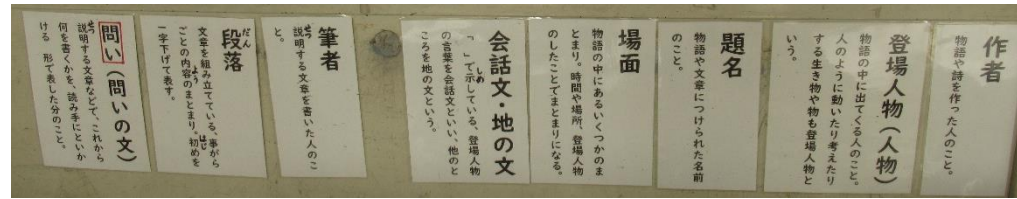 作者
物語や詩を作った人のこと。
登場人物（人物）
物語の中に出てくる人のこと。
人のように動いたり考えたり
する生き物や物も登場人物と
いう。
題名
物語や文章につけられた名前
のこと。
場面
物語の中にあるいくつかのま
とまり。時間や場所、登場人物
のしたことでまとまりになる。
会話文・地の文
「　」で示している、登場人物
の言葉を会話文といい、他のと
ころを地の文という。
筆者
説明する文章を書いた人のこ
と。
段落
文章を組み立てている、事がら
ごとの内容のまとまり。初めを
一字下げて表す。
問い（問いの文）
説明する文章などで、これから
何を書くかを、読み手にといか
ける　形で表した分のこと。